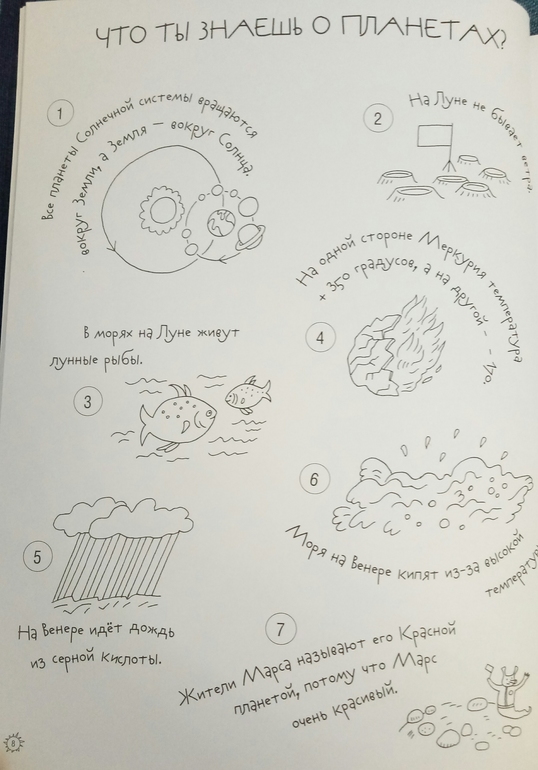 ЧТО ТЫ ЗНАЕШЬ О ПЛАНЕТАХ?
1
Все планеты Солнечной системы вращаются
вокруг Земли, а Земля — вокруг Солнца.
2
На Луне не бывает ветра.
3
В морях на Луне живут
лунные рыбы.
4
На одной стороне Меркурия температура
+ 350 градусов, а на другой - - 170.
5
На Венере идёт дождь
из серной кислоты.
6
Моря на Венере кипят из-за высокой
температуры
7
Жители Марса называют его Красной
планетой, потому что Марс
очень красивый.
8